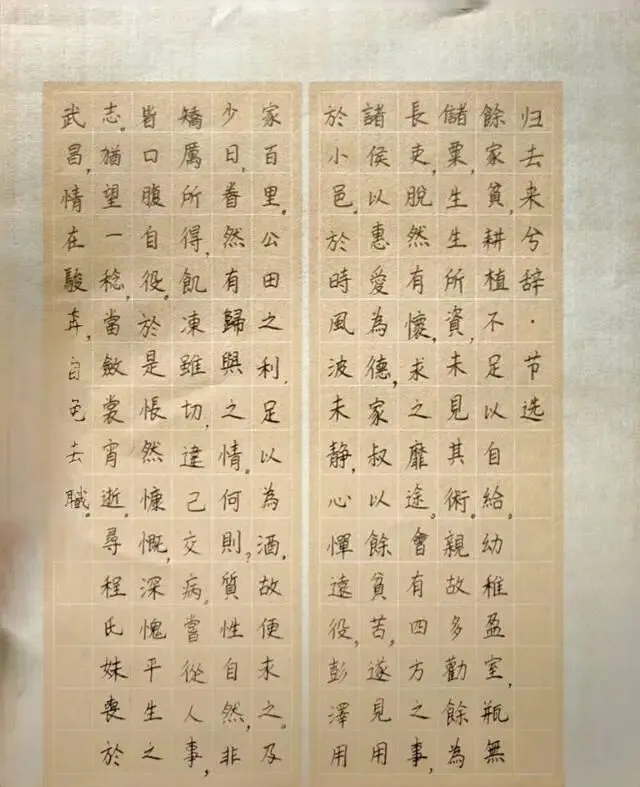 归去来兮辞·节选
餘家貧,耕植不足以自給。幼稚盈室,瓶無
儲粟,生生所資,未見其術。親故多勸餘為
長吏,脫然有懷,求之靡途。會有四方之事,
諸侯以惠愛為德,家叔以餘貧苦,遂見用
於小邑。於時風波未静,心憚遠役,彭澤用
家百里。公田之利,足以為酒,故便求之。及
少日,眷然有歸與之情。何則?質性自然,非
矯厲所得,飢凍雖切,違己交病。嘗從人事,
皆口腹自役。於是悵然慷慨,深愧平生之
志。猶望一稔,當斂裳宵逝。尋程氏妹喪於
武昌,情在駿奔,自免去職。